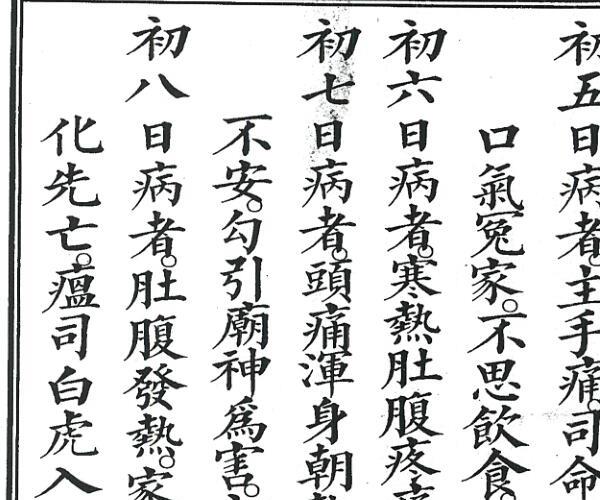 初五日病者。主手痛。司命
口氣冤家。不思飲食。
初六日病者。寒熱肚腹疼
初七日病者。頭痛渾身朝
不安。勾引廟神為害。
初八日病者。肚腹發熱。家
化先亡。瘟司白虎入